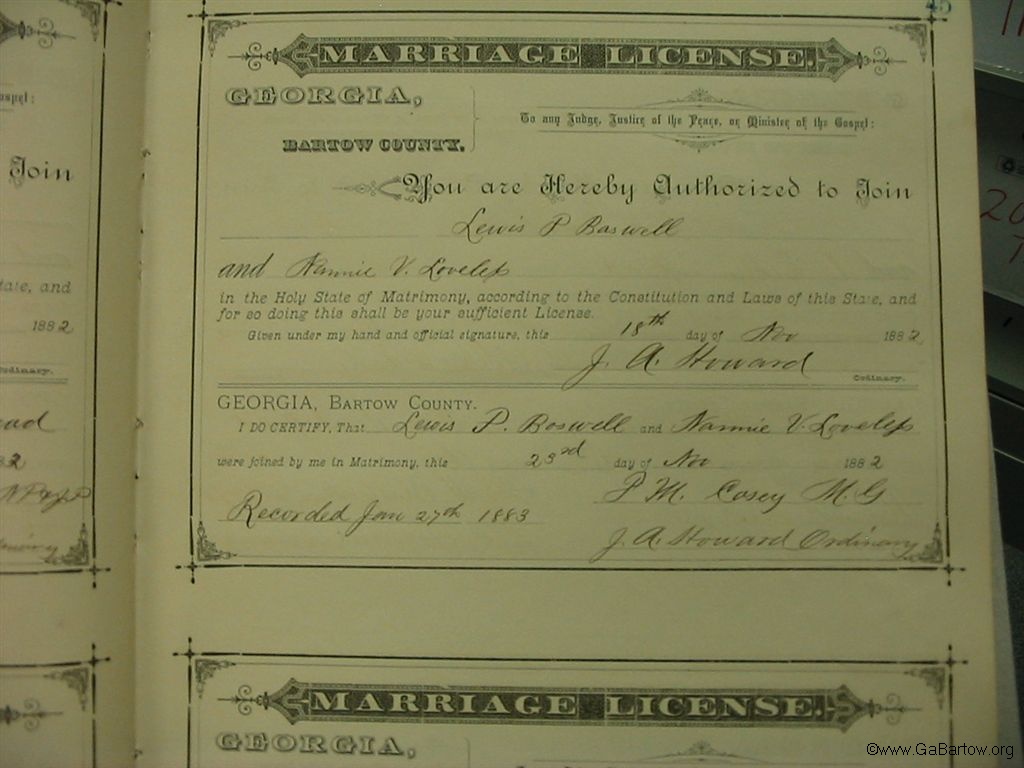 45
MARRIAGE LICENSE.
GEORGIA,
BARTOW COUNTY.
To any Judge, Justice of the Peace, or Minister of the Gospel:
You are Hereby Authorized to Join
Lewis P Boswell
and Nannie V. Loveless
in the Holy State of Matrimony, according to the Constitution and Laws of this State, and
for so doing this shall be your sufficient License.
Given under my hand and official signature, this 18th day of Nov 1882
J. A. Howard
Ordinary.
GEORGIA, BARTOW COUNTY.
I DO CERTIFY, That Lewis P. Boswell and Nannie V. Loveless
were joined by me in Matrimony, this 23rd day of Nov 1882
P. M. Casey M. G
Recorded Jan 27th 1883
J. A. Howard Ordinary
MARRIAGE LICENSE.
GEORGIA,
Join
and
1882
Ordinary.
©www.GaBartow.org